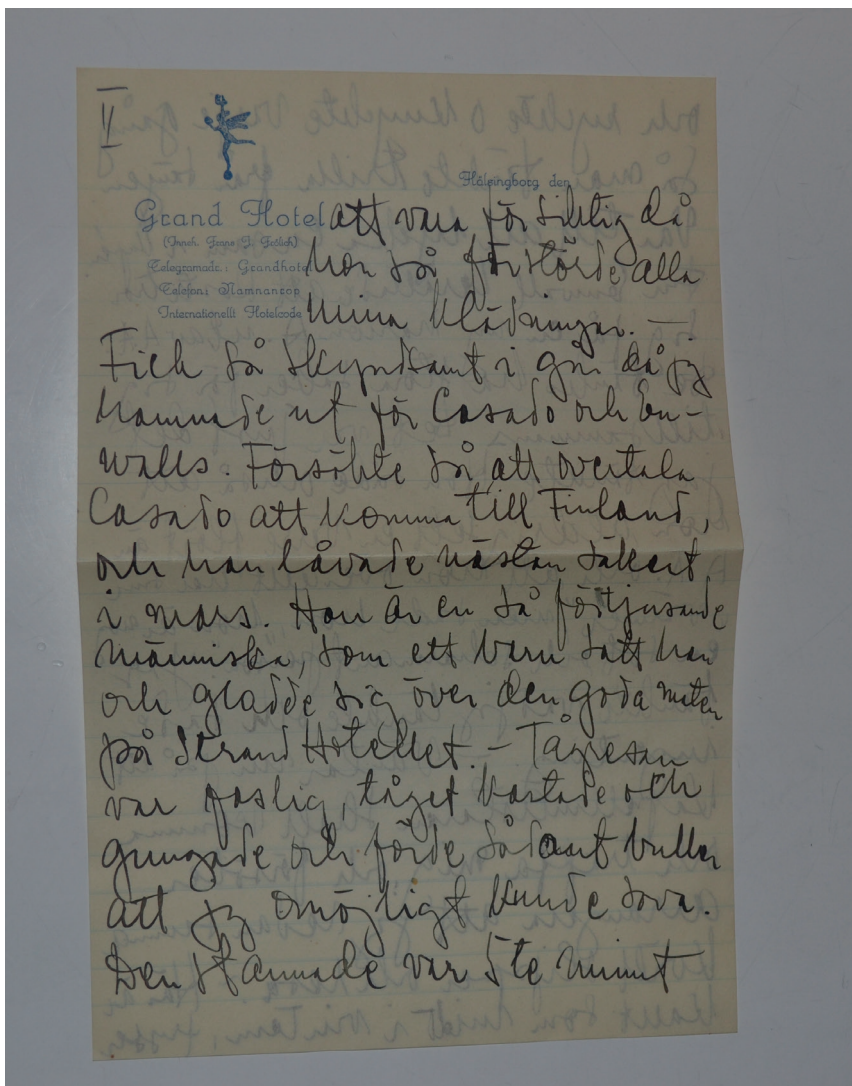 V
Hälsingborg den
Grand Hotel
(Inneh. Frans J. Frölich)
Telegramadr.: Grandhotel
Telefon: Namnanrop
Internationellt Hotelcode
att vara försiktig då
hon så förstörde alla
mina klädningar. —
Fick så skyndsamt i går då jg
hamnade ut för Casado och En-
walls. Försökte så att övertala
Casado att komma till Finland,
och han låvade nästan säkert
i mars. Han är en så förtjusande
människa, som ett barn satt han
och gladde sig över den goda maten
på Strand Hotellet. – Tågresan
var gaslig, tåget kastade och
gungade och förde sådant buller
att jg omöjligt kunde sova.
Den stannade var 5te minut